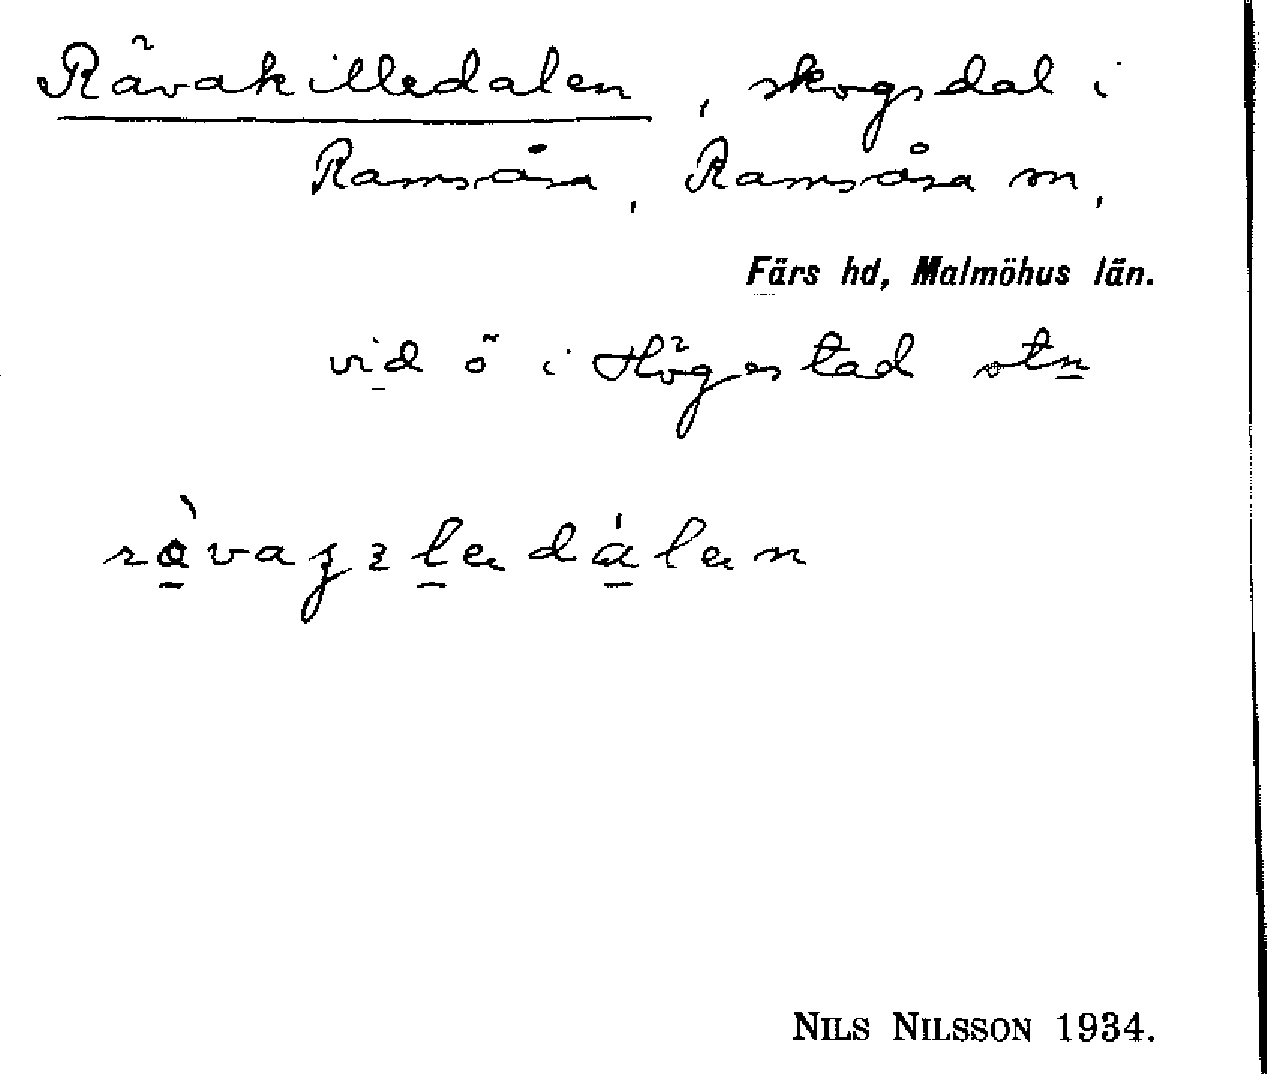 Rävakilledalen, skogsdal i
Ramsåsa, Ramsåsa sn,
Färs hd, Malmöhus län.
vid ö i Högestad stn
NILS NILSSON 1934.